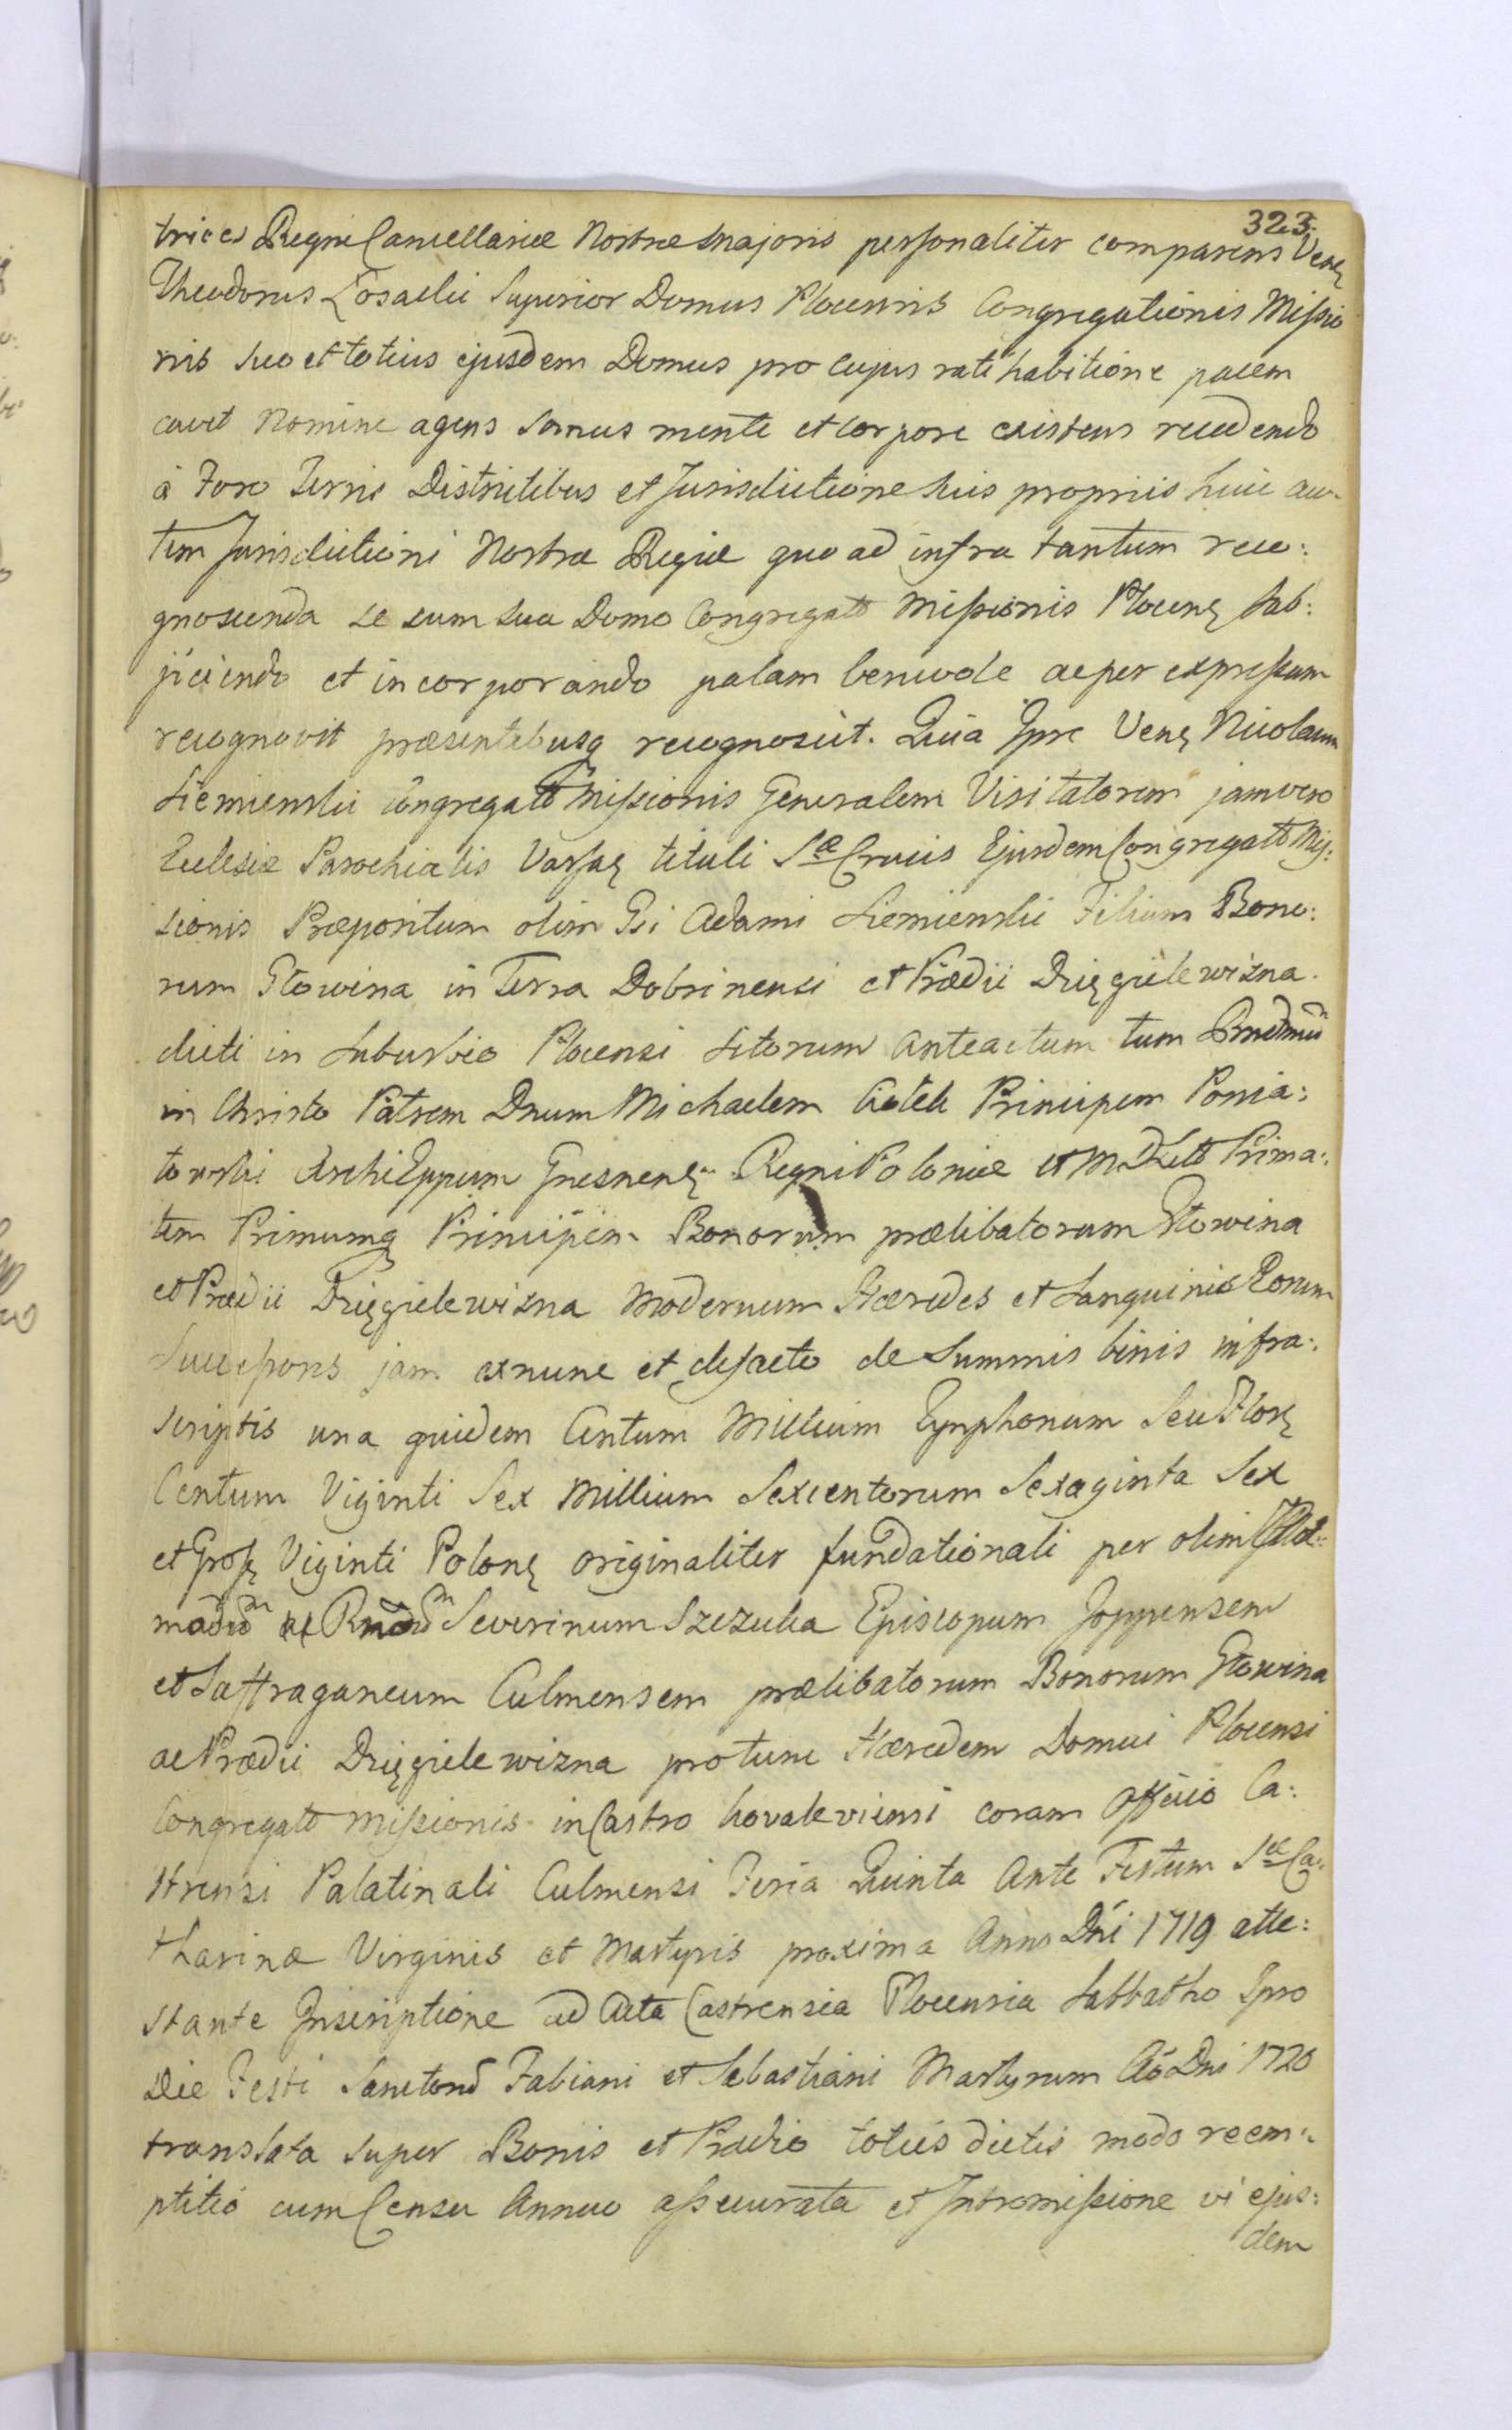 323.
trices Regni Cancellariæ Nostræ Majoris personaliter comparens Venę
Theodorus Łosacki Superior Domus Plocensis Congregationis Missio
nis suo et totius ejusdem Domus pro cujus ratihabitione pacem
cavet Nomine agens sanus mente et corpore existens recedendo
à Foro Terris Districtibus et Jurisdictione suis propriis huic au-
tem Jurisdictioni Nostræ Regiæ quo ad infra tantum reco:
gnoscenda se cum sua Domo Congregatō Missionis Plocenę sub:
jiciendo et incorporando palam benevole ac per expressum
recognovit præsentibusq recognoscit. Quia Ipse Venę Nicolaum
Siemienski Congregatō Missionis Generalem Visitatorem jam vero
Ecclesiæ Parochialis Varsaę tituli Sæ Crucis Ejusdem Congregatō Mis:
sionis Præpositum olim Gsi Adami Siemienski Filium Bono:
rum Głowina in Terra Dobrinensi et Prædii Dzięgielewizna
dicti in Suburbio Plocensi sitorum anteactum tum
in Christo Patrem Dnum Michaelem Ciołek Principem Ponia:
towski ArchiEppum Gnesnenę Regni Poloniæ et M D Littō Prima:
tem Primumq Principem Bonorum prælibatorum Głowina
et Prædii Dzięgielewizna Modernum Hæredes et Sanguinis Eorum
Successores jam exnunc et defacto de Summis binis infra:
scriptis una quidem Centum Millium Tynphonum seu Florę
Centum Viginti Sex Millium Sexcentorum Sexaginta Sex
et Grosę Viginti Polonę originaliter fundationali per olim
Severinum Szczuka Episcopum Joppensem
et Suffraganeum Culmensem prælibatorum Bonorum Głowina
ac Prædii Dzięgielewizna protunc Hæredem Domui Plocensi
Congregatō Missionis in Castro Kovaleviensi coram Officio Ca:
strensi Palatinali Culmensi Feria Quinta Ante Festum Sæ Ca:
tharinæ Virginis et Martyris proxima Anno Dni 1719 atte:
stante Inscriptione ad Acta Castrensia Plocensia Sabbatho Ipso
Die Festi Sanctorū Fabiani et Sebastiani Martyrum Aō Dni 1720
translata super Bonis et Prædio toties dictis modo reem:
ptitió cum Censu Annuo assecurata et Intromissione vi ejus:
dem